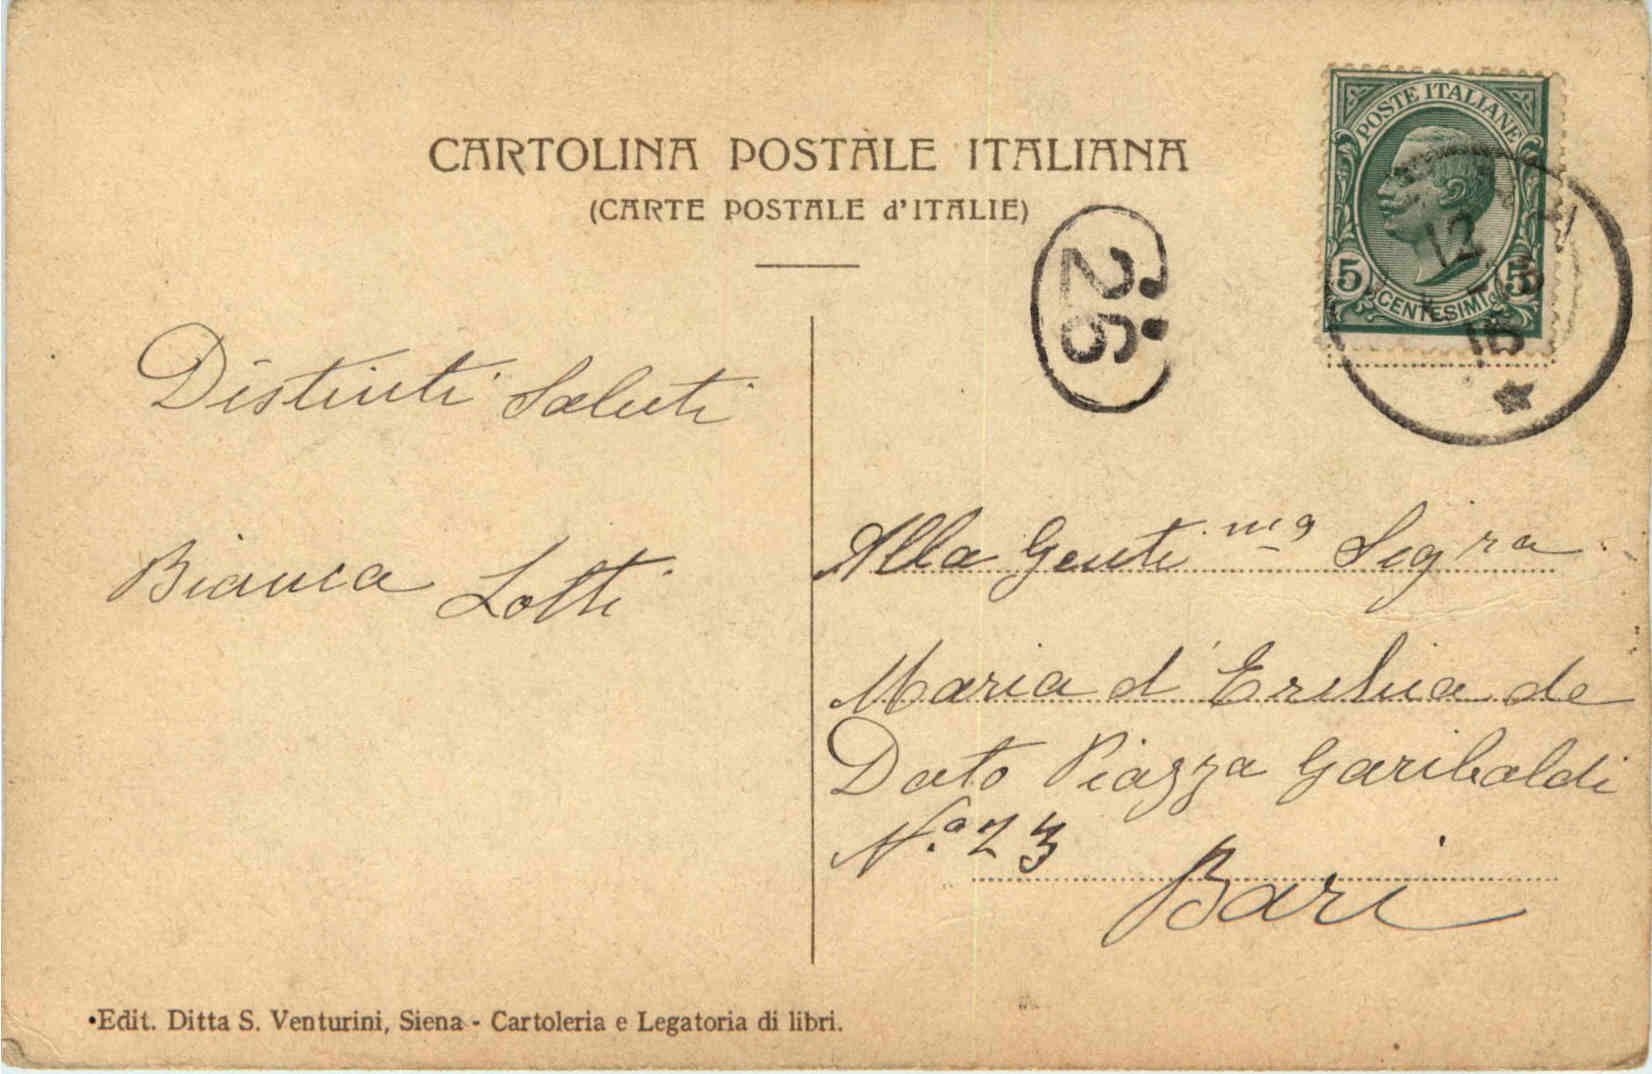 CARTOLINA POSTALE ITALIANA
(CARTE POSTALE d'ITALIE)
POSTE ITALIANE
5 CENTESIMI 5
12
26
Distinti Saluti
Bianca Lotti
Alla Genti ma Sigra
Maria d'
de
Dato Piazza Garibaldi
N.º 23
Bari
Edit. Ditta S. Venturini, Siena - Cartoleria e Legatoria di libri.